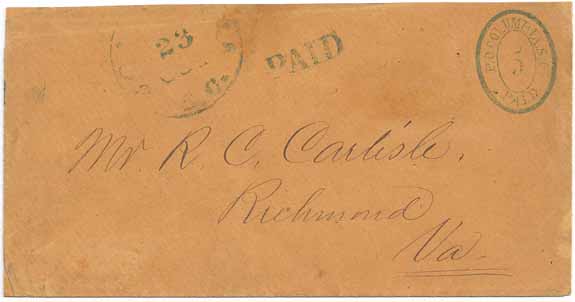 23
C.
PAID
P.O. COLUMBIA, S.C.
5
PAID
Mr. R. C. Carlisle.
Richmond
Va.